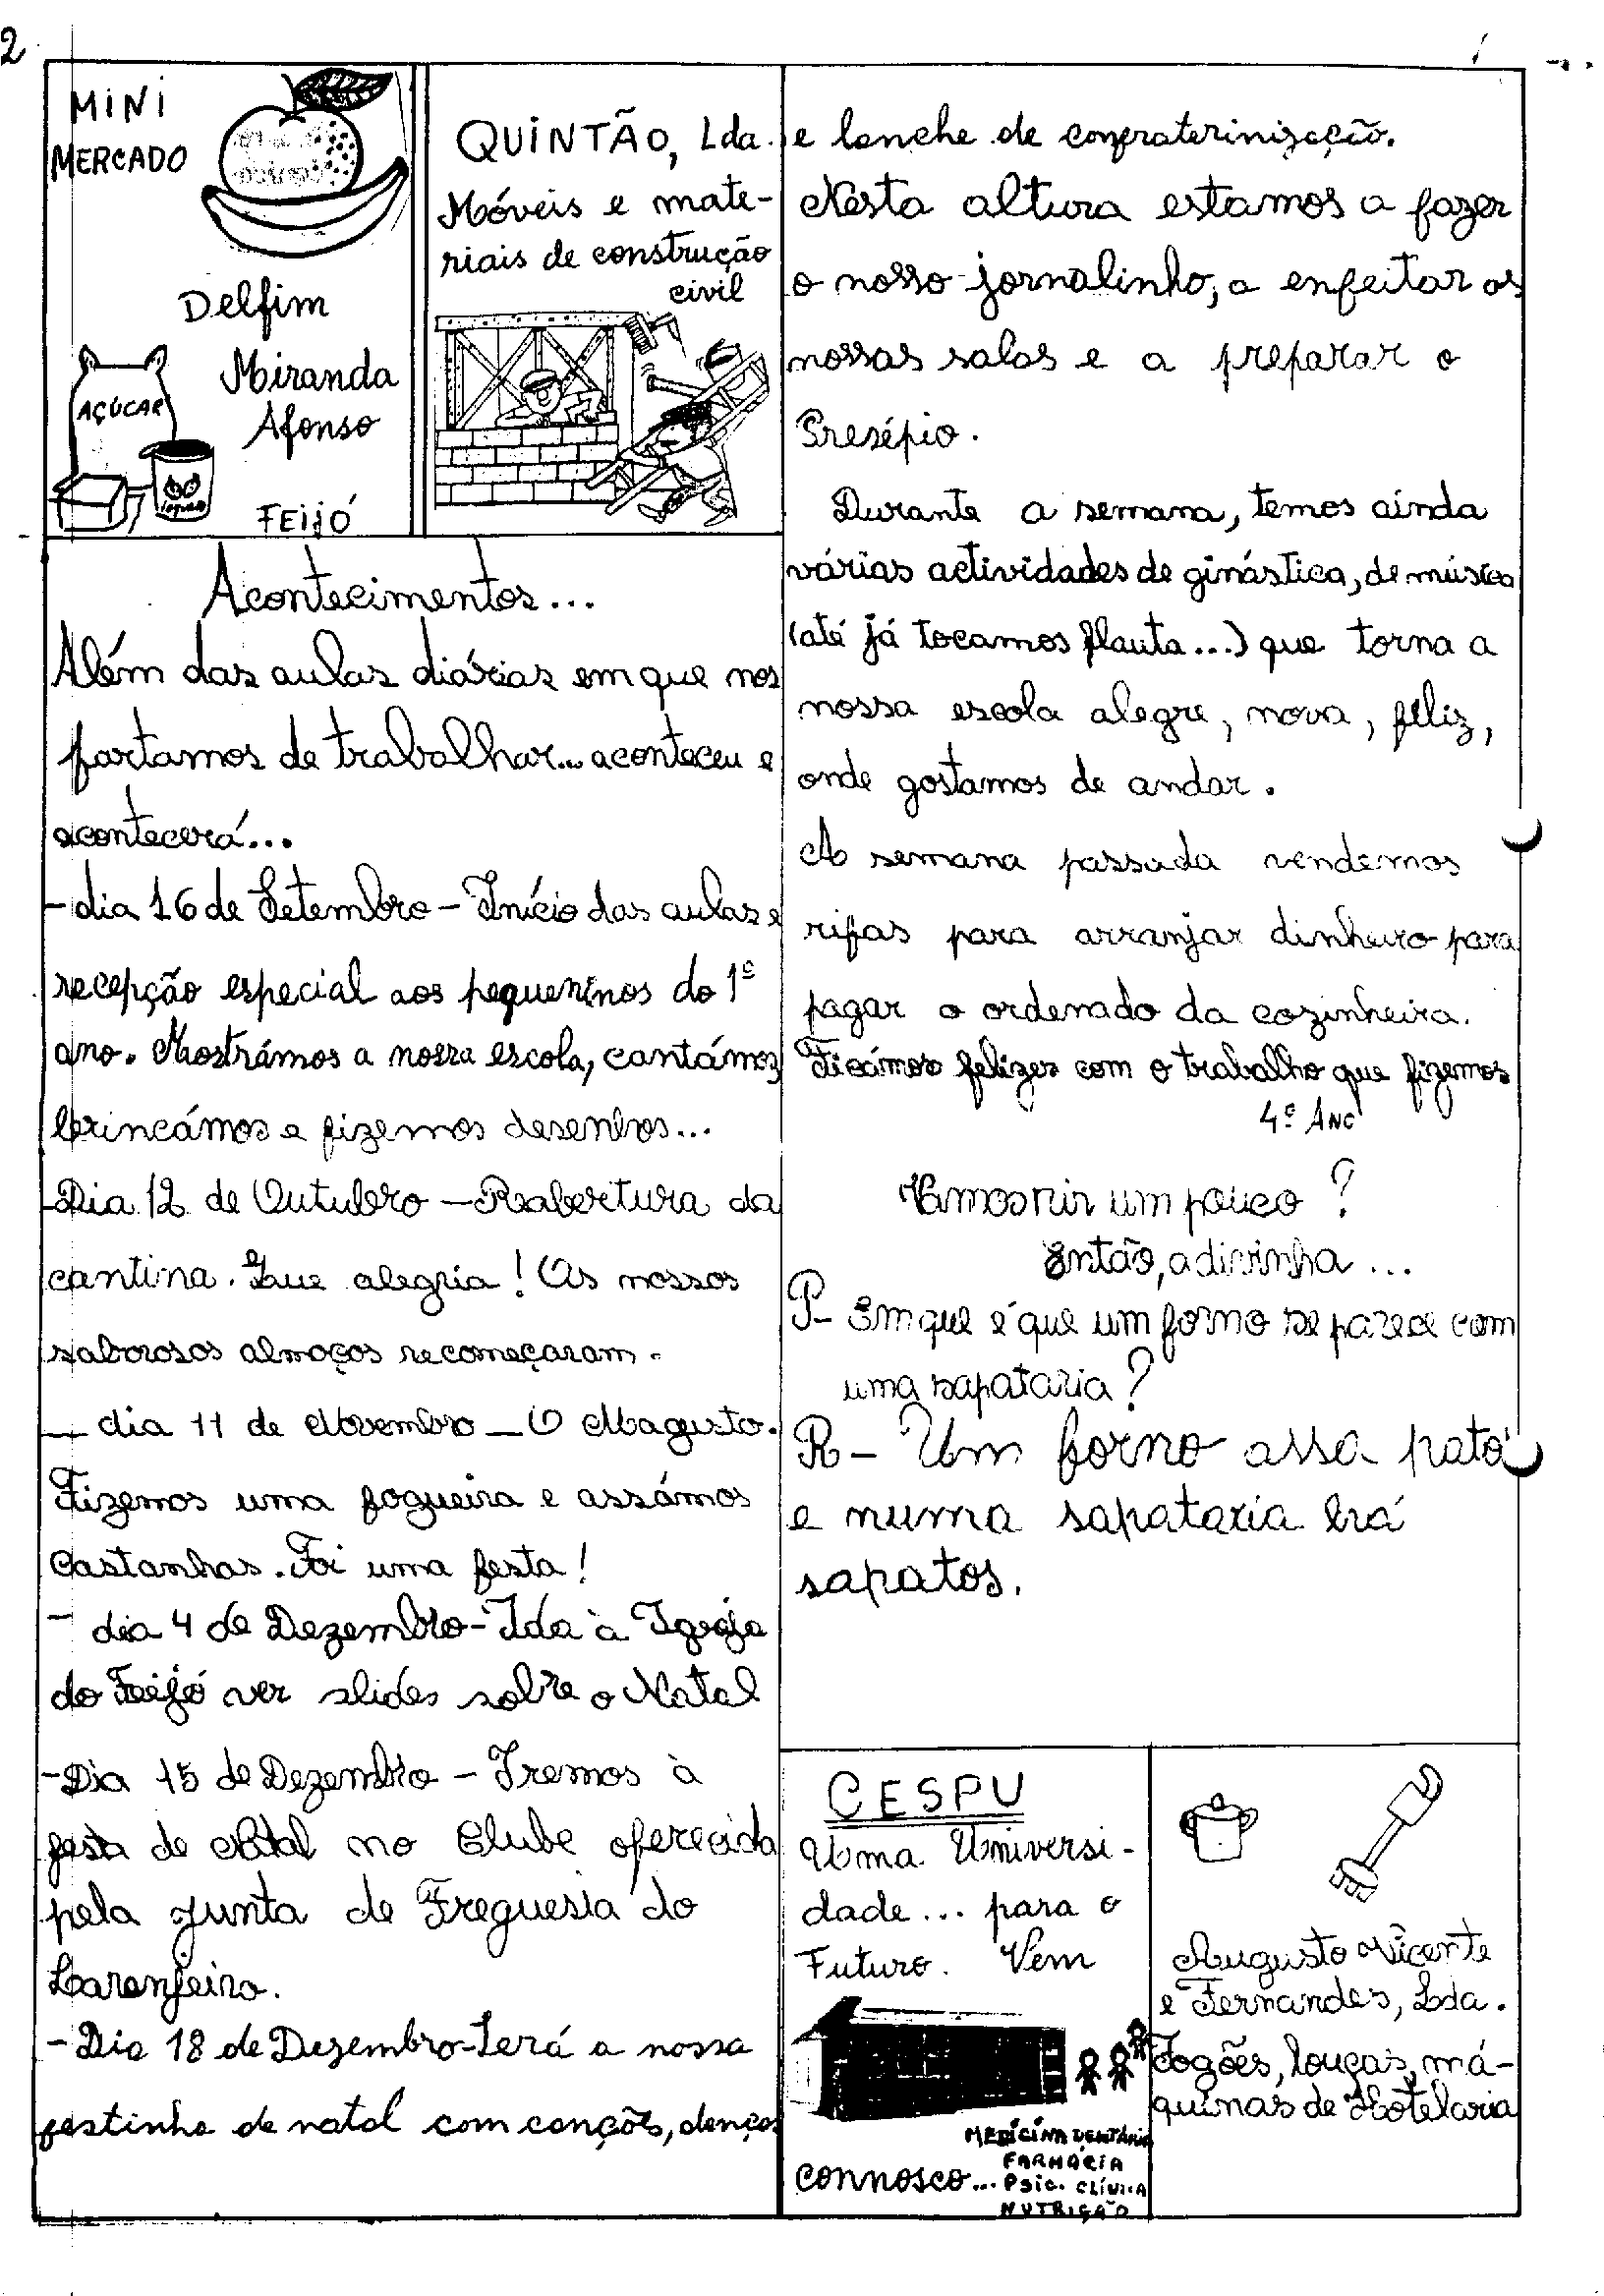 2
MINI
MERCADO
Delfim
Miranda
Afonso
AÇÚCAR
FEIJÓ
QUINTÃO, Lda.
Móveis e mate-
riais de construção
civil
Acontecimentos...
Além das aulas diárias em que nos
fartamos de trabalhar... aconteceu e
acontecerá...
- dia 16 de Setembro - Início das aulas e
recepção especial aos pequeninos do 1º
ano. Mostrámos a nossa escola, cantámos
brincámos e fizemos desenhos...
- Dia 12 de Outubro - Reabertura da
cantina. Que alegria! Os nossos
saborosos almoços recomeçaram.
- dia 11 de Novembro - O Magusto.
Fizemos uma fogueira e assámos
castanhas. Foi uma festa!
- dia 4 de Dezembro - Ida à Igreja
do Feijó ver slides sobre o Natal
- Dia 15 de Dezembro - Iremos à
festa de Natal no Clube oferecida
pela Junta de Freguesia do
Laranjeiro.
- Dia 18 de Dezembro - Será a nossa
festinha de natal com cançõs, danças
e lanche de confraterinização.
Nesta altura estamos a fazer
o nosso jornalinho, a enfeitar as
nossas salas e a preparar o
Presépio.
Durante a semana, temos ainda
várias actividades de ginástica, de música
(até já tocamos flauta...) que torna a
nossa escola alegre, nova, feliz,
onde gostamos de andar.
A semana passada vendemos
rifas para arranjar dinheiro para
pagar o ordenado da cozinheira.
Ficámos felizes com o trabalho que fizemos
4º Ano
Vamos rir um pouco?
Então, adivinha...
P- Em que é que um forno se parece com
uma sapataria?
R- Um forno assa pato
e numa sapataria há
sapatos.
CESPU
Uma Universi-
dade... para o
Futuro. Vem
connosco...
MEDICINA DENTÁRIA
FARMÁCIA
PSIC. CLÍNICA
NUTRIÇÃO
Augusto Vicente
e Fernandes, Lda.
Fogões, louças, má-
quinas de Hotelaria